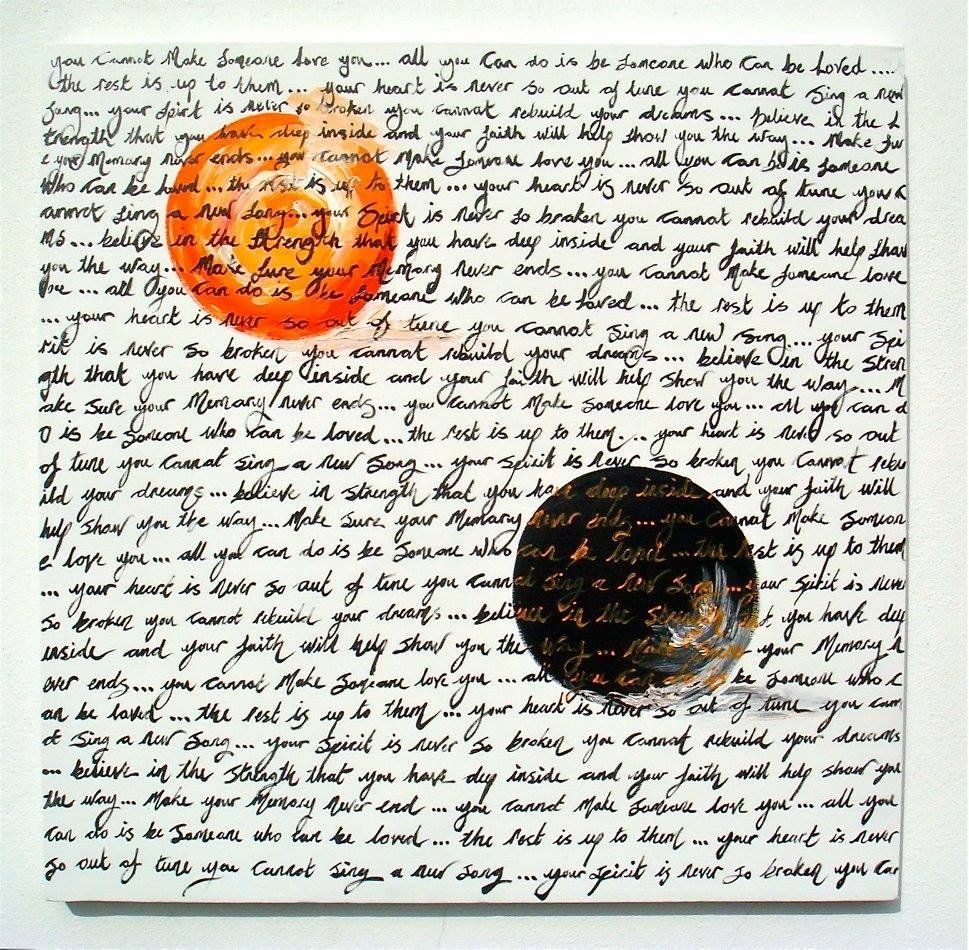 you Cannot Make Someone love you... all you Can do is be Someone who Can be Loved....
the rest is up to them... your heart is never so out of tune you cannot sing a new
Song... your Spirit is never so broken you cannot rebuild your dreams... believe in the S
trength that you have deep inside and your faith will help show you the way... Make Sur
e your Memory never ends... you cannot Make Someone love you... all you can be is Someone
who can be loved... the rest is up to them... your heart is never so out of tune you c
annot sing a new Song... your Spirit is never so broken you cannot rebuild your drea
ms... believe in the Strength that you have deep inside and your faith will help show
you the way... Make Sure your Memory never ends... you cannot Make Someone love
you... all you can do is be Someone who can be loved... the rest is up to them
... your heart is never so out of tune you cannot sing a new song.... your Spi
rit is never so broken you cannot rebuild your dreams... believe in the Stren
gth that you have deep inside and your faith will help show you the way.... M
ake Sure your Memory never ends... you cannot Make Someone love you... all you can d
o is be Someone who can be loved... the rest is up to them... your heart is never so out
of tune you cannot sing a new Song... your Spirit is never so broken you cannot rebu
ild your dreams... believe in strength that you have deep inside and your faith will
help show you the way... Make Sure your Memory never ends... you cannot Make Someon
e love you... all you can do is be Someone who can be loved... the rest is up to them
... your heart is never so out of tune you cannot sing a new Song... your Spirit is never
so broken you cannot rebuild your dreams... believe in the Strength that you have deep
inside and your faith will help show you the way... Make Sure your Memory n
ever ends... you cannot Make Someone love you... all you can do is be Someone who c
an be loved... the rest is up to them... your heart is never so out of tune you cann
ot sing a new Song... your Spirit is never so broken you cannot rebuild your dreams
... believe in the Strength that you have deep inside and your faith will help show you
the way... Make your Memory never end... you cannot Make Someone love you... all you
can do is be Someone who can be loved... the rest is up to them... your heart is never
so out of tune you cannot sing a new song... your Spirit is never so broken you can